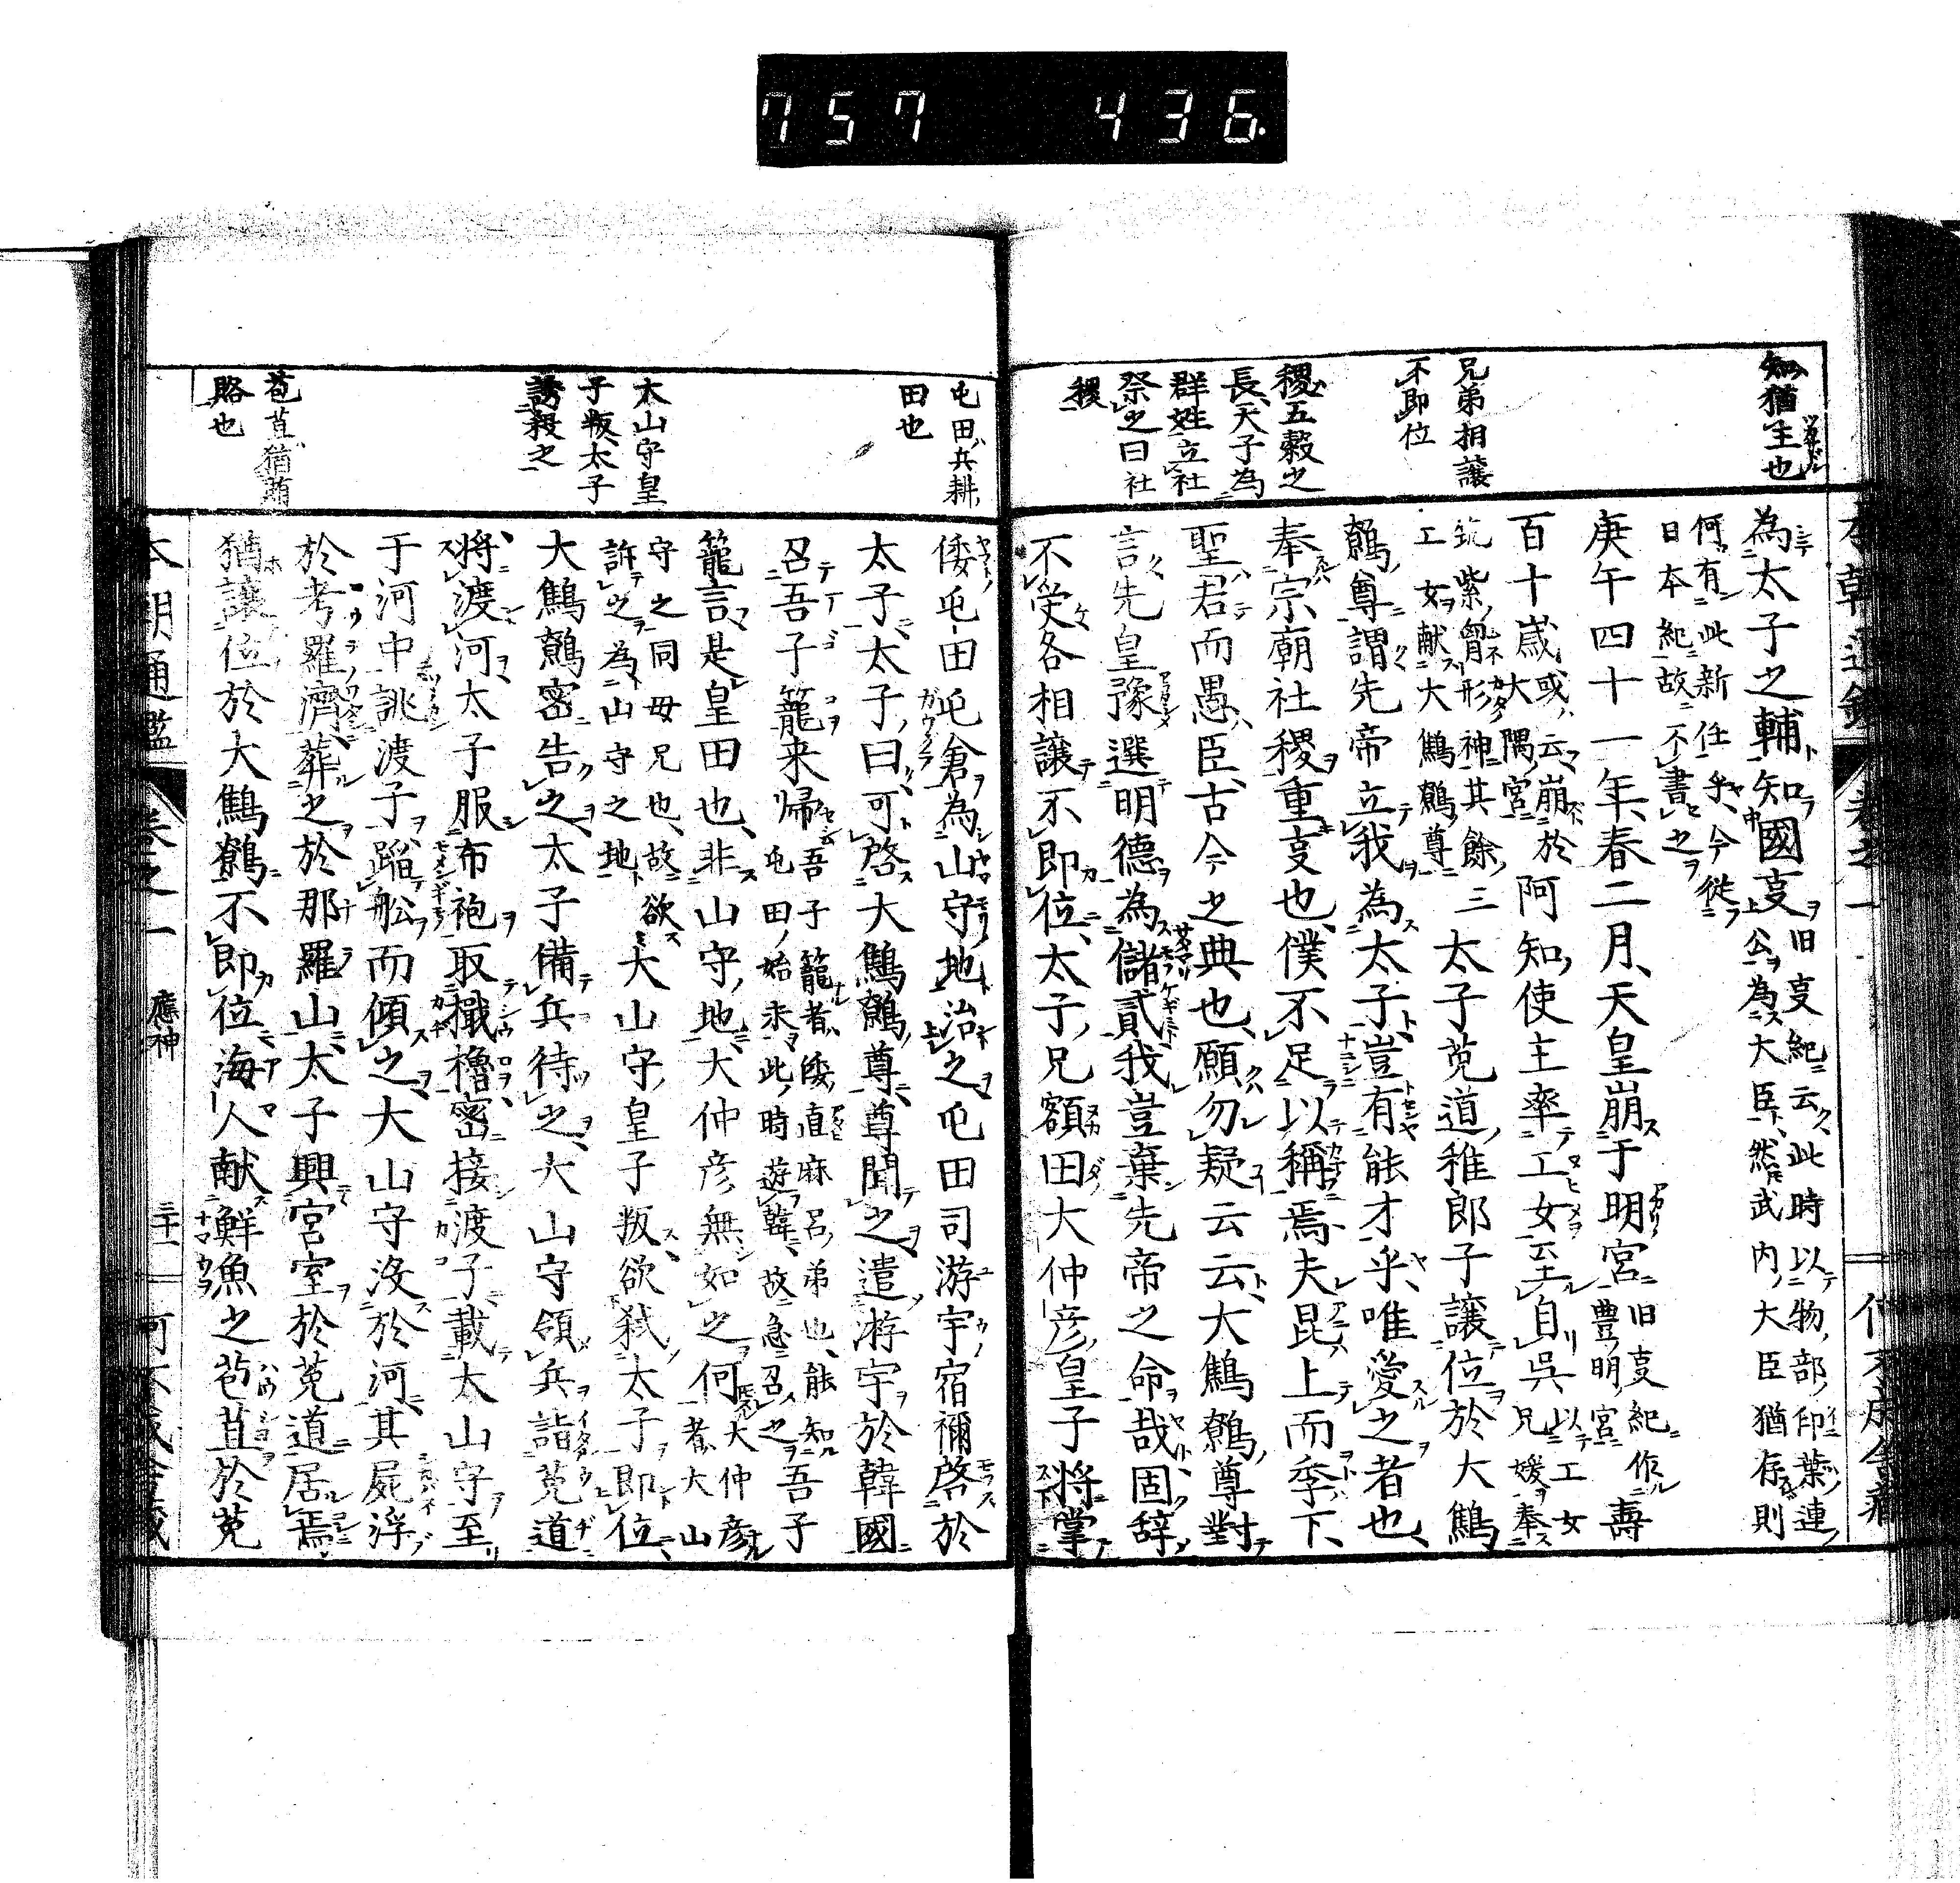 757 436.
知猶主也
兄弟相讓
不即位
稷五穀之
長天子為
群姓立社
祭之曰社
稷
為太子之輔知國叓旧叓紀云此時以物部印葉連
公為大臣然武内大臣猶存則
何有此新任乎今従
日本紀故不書之
庚午四十一年春二月天皇崩于明宮旧叓紀作
豊明宮壽
百十歳或云崩於
大隅宮阿知使主率工女至自呉以工女
兄媛奉
筑紫胷形神其餘三
工女献大鷦鷯尊太子莵道稚郎子讓位於大鷦
鷯尊謂先帝立我為太子豈有能才乎唯愛之者也
奉宗廟社稷重叓也僕不足以稱焉夫昆上而季下
聖君而愚臣古今之典也願勿疑云云大鷦鷯尊對
言先皇豫選明德為儲貳我豈棄先帝之命哉固辞
不受各相讓不即位太子兄額田大仲彦皇子将掌
屯田ハ兵耕
田也
大山守皇
子叛太子
誘殺之
苞苴猶賄
賂也
倭屯田屯倉為山守地治之屯田司游宇宿禰啓於
太子太子曰可啓大鷦鷯尊尊聞之遣游宇於韓國
召吾子籠来帰吾子籠者倭直麻呂弟也能知
屯田始末此時遊韓故急召之吾子
籠言是皇田也非山守地大仲彦無如之何大仲彦
者大山
守之同母兄也故欲
許之為山守之地大山守皇子叛欲弑太子即位
大鷦鷯密告之太子備兵待之大山守領兵詣莵道
将渡河太子服布袍取檝櫓密接渡子載大山守至
于河中誂渡子蹈舩而傾之大山守没於河其屍浮
於考羅濟葬之於那羅山太子興宮室於莵道居焉
猶讓位於大鷦鷯不即位海人献鮮魚之苞苴於莵
本朝通鑑
巻之一
應神
二十一